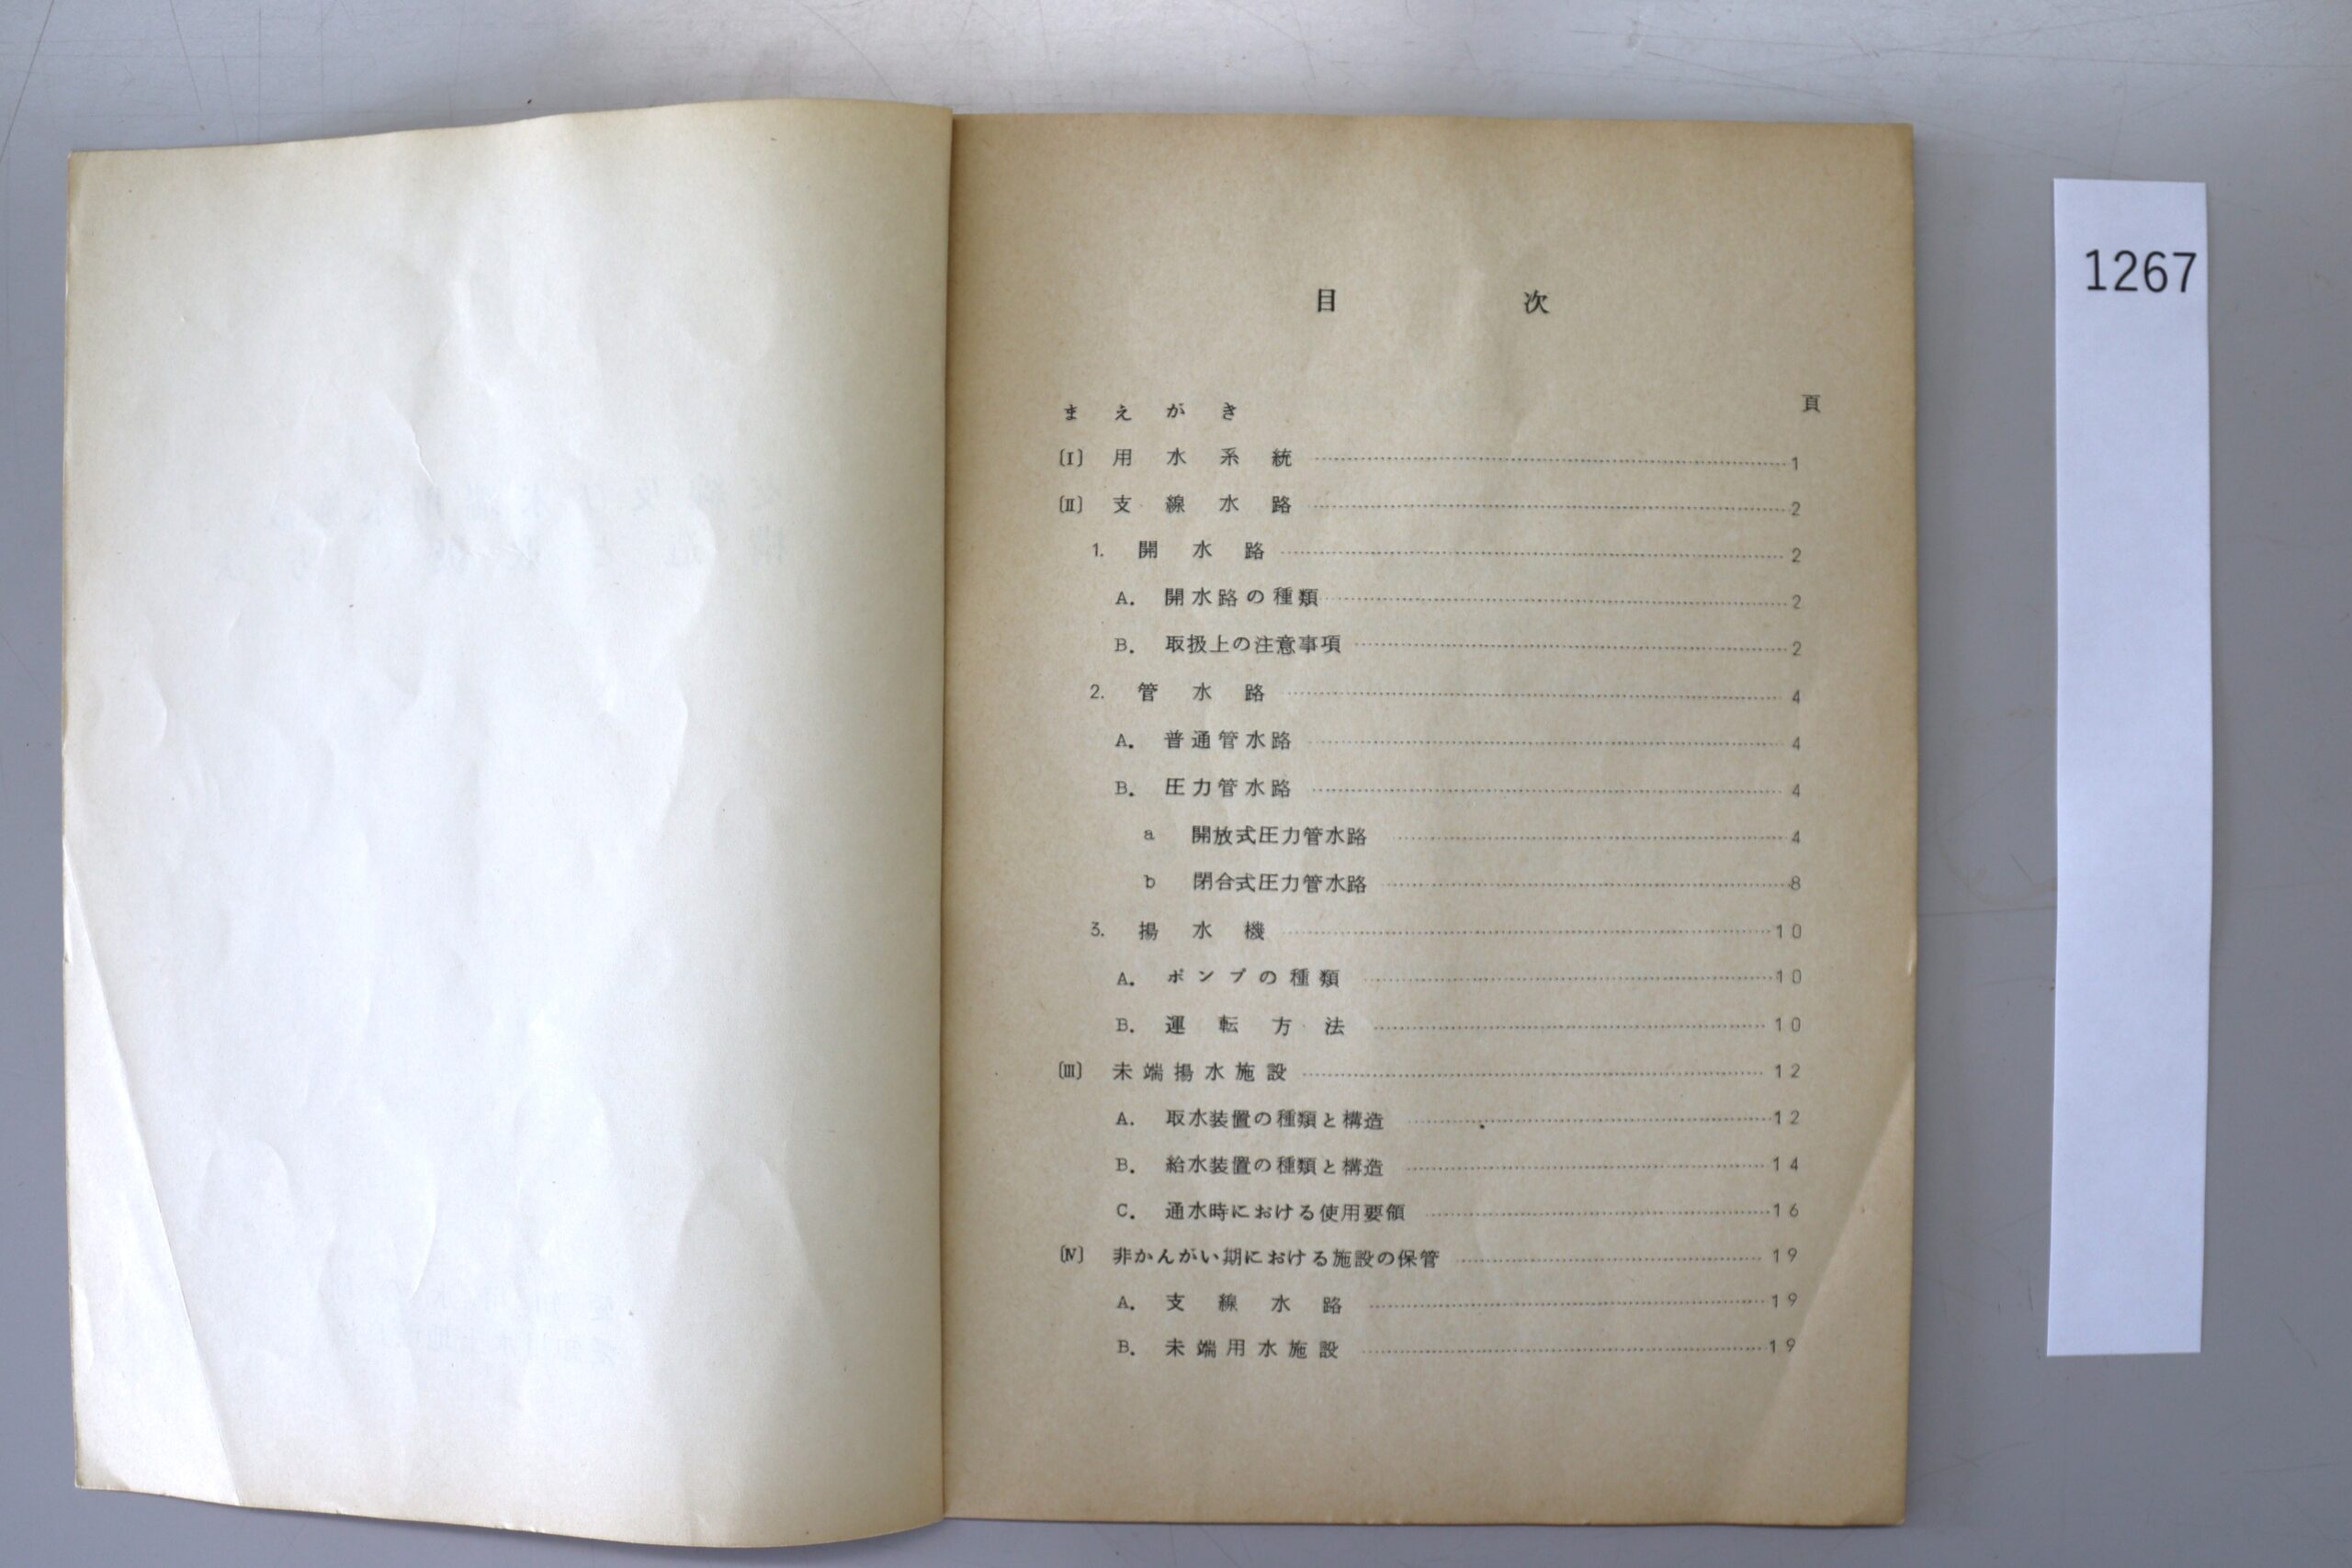 目次
頁
まえがき
〔I〕 用水系統 1
〔II〕 支線水路 2
1. 開水路 2
A. 開水路の種類 2
B. 取扱上の注意事項 2
2. 管水路 4
A. 普通管水路 4
B. 圧力管水路 4
a 開放式圧力管水路 4
b 閉合式圧力管水路 8
3. 揚水機 10
A. ポンプの種類 10
B. 運転方法 10
〔III〕 未端揚水施設 12
A. 取水装置の種類と構造 12
B. 給水装置の種類と構造 14
C. 通水時における使用要領 16
〔IV〕 非かんがい期における施設の保管 19
A. 支線水路 19
B. 未端用水施設 19
1267